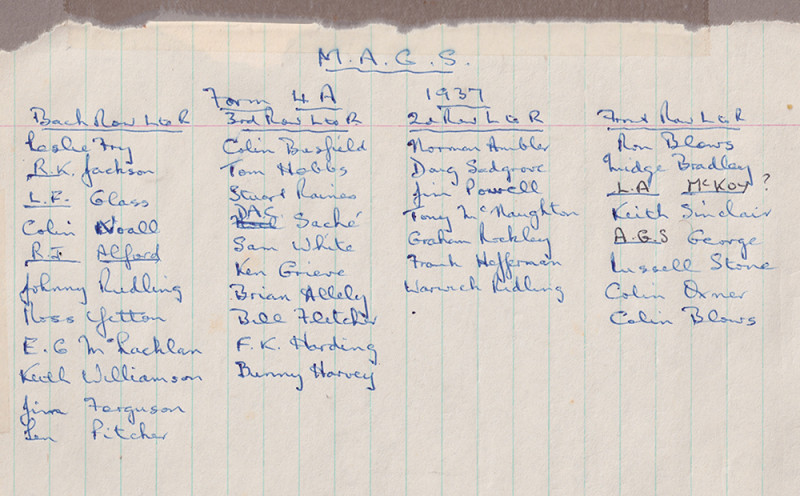 M.A.G.S.
Form 4A 1937
Back Row L to R
Leslie Fry
R.K. Jackson
L.F. Glass
Colin Noall
R.J. Alford
Johnny Riedling
Ross Yetton
E.G McLachlan
Keith Williamson
Jim Ferguson
Len Pitcher
3rd Row L to R
Colin Busfield
Tom Hobbs
Stuart Raines
DAG Saché
Sam White
Ken Grieve
Brian Allely
Bill Fletcher
F.K. Harding
Bunny Harvey
2nd Row L to R
Norman Ambler
Doug Sedgrove
Jim Powell
Tony McNaughton
Graham Rockley
Frank Hefferman
Warwick Ridling
Front Row L to R
Ron Blows
Midge Bradley
L.A McKoy ?
Keith Sinclair
A.G.S George
Russell Stone
Colin Oxner
Colin Blows